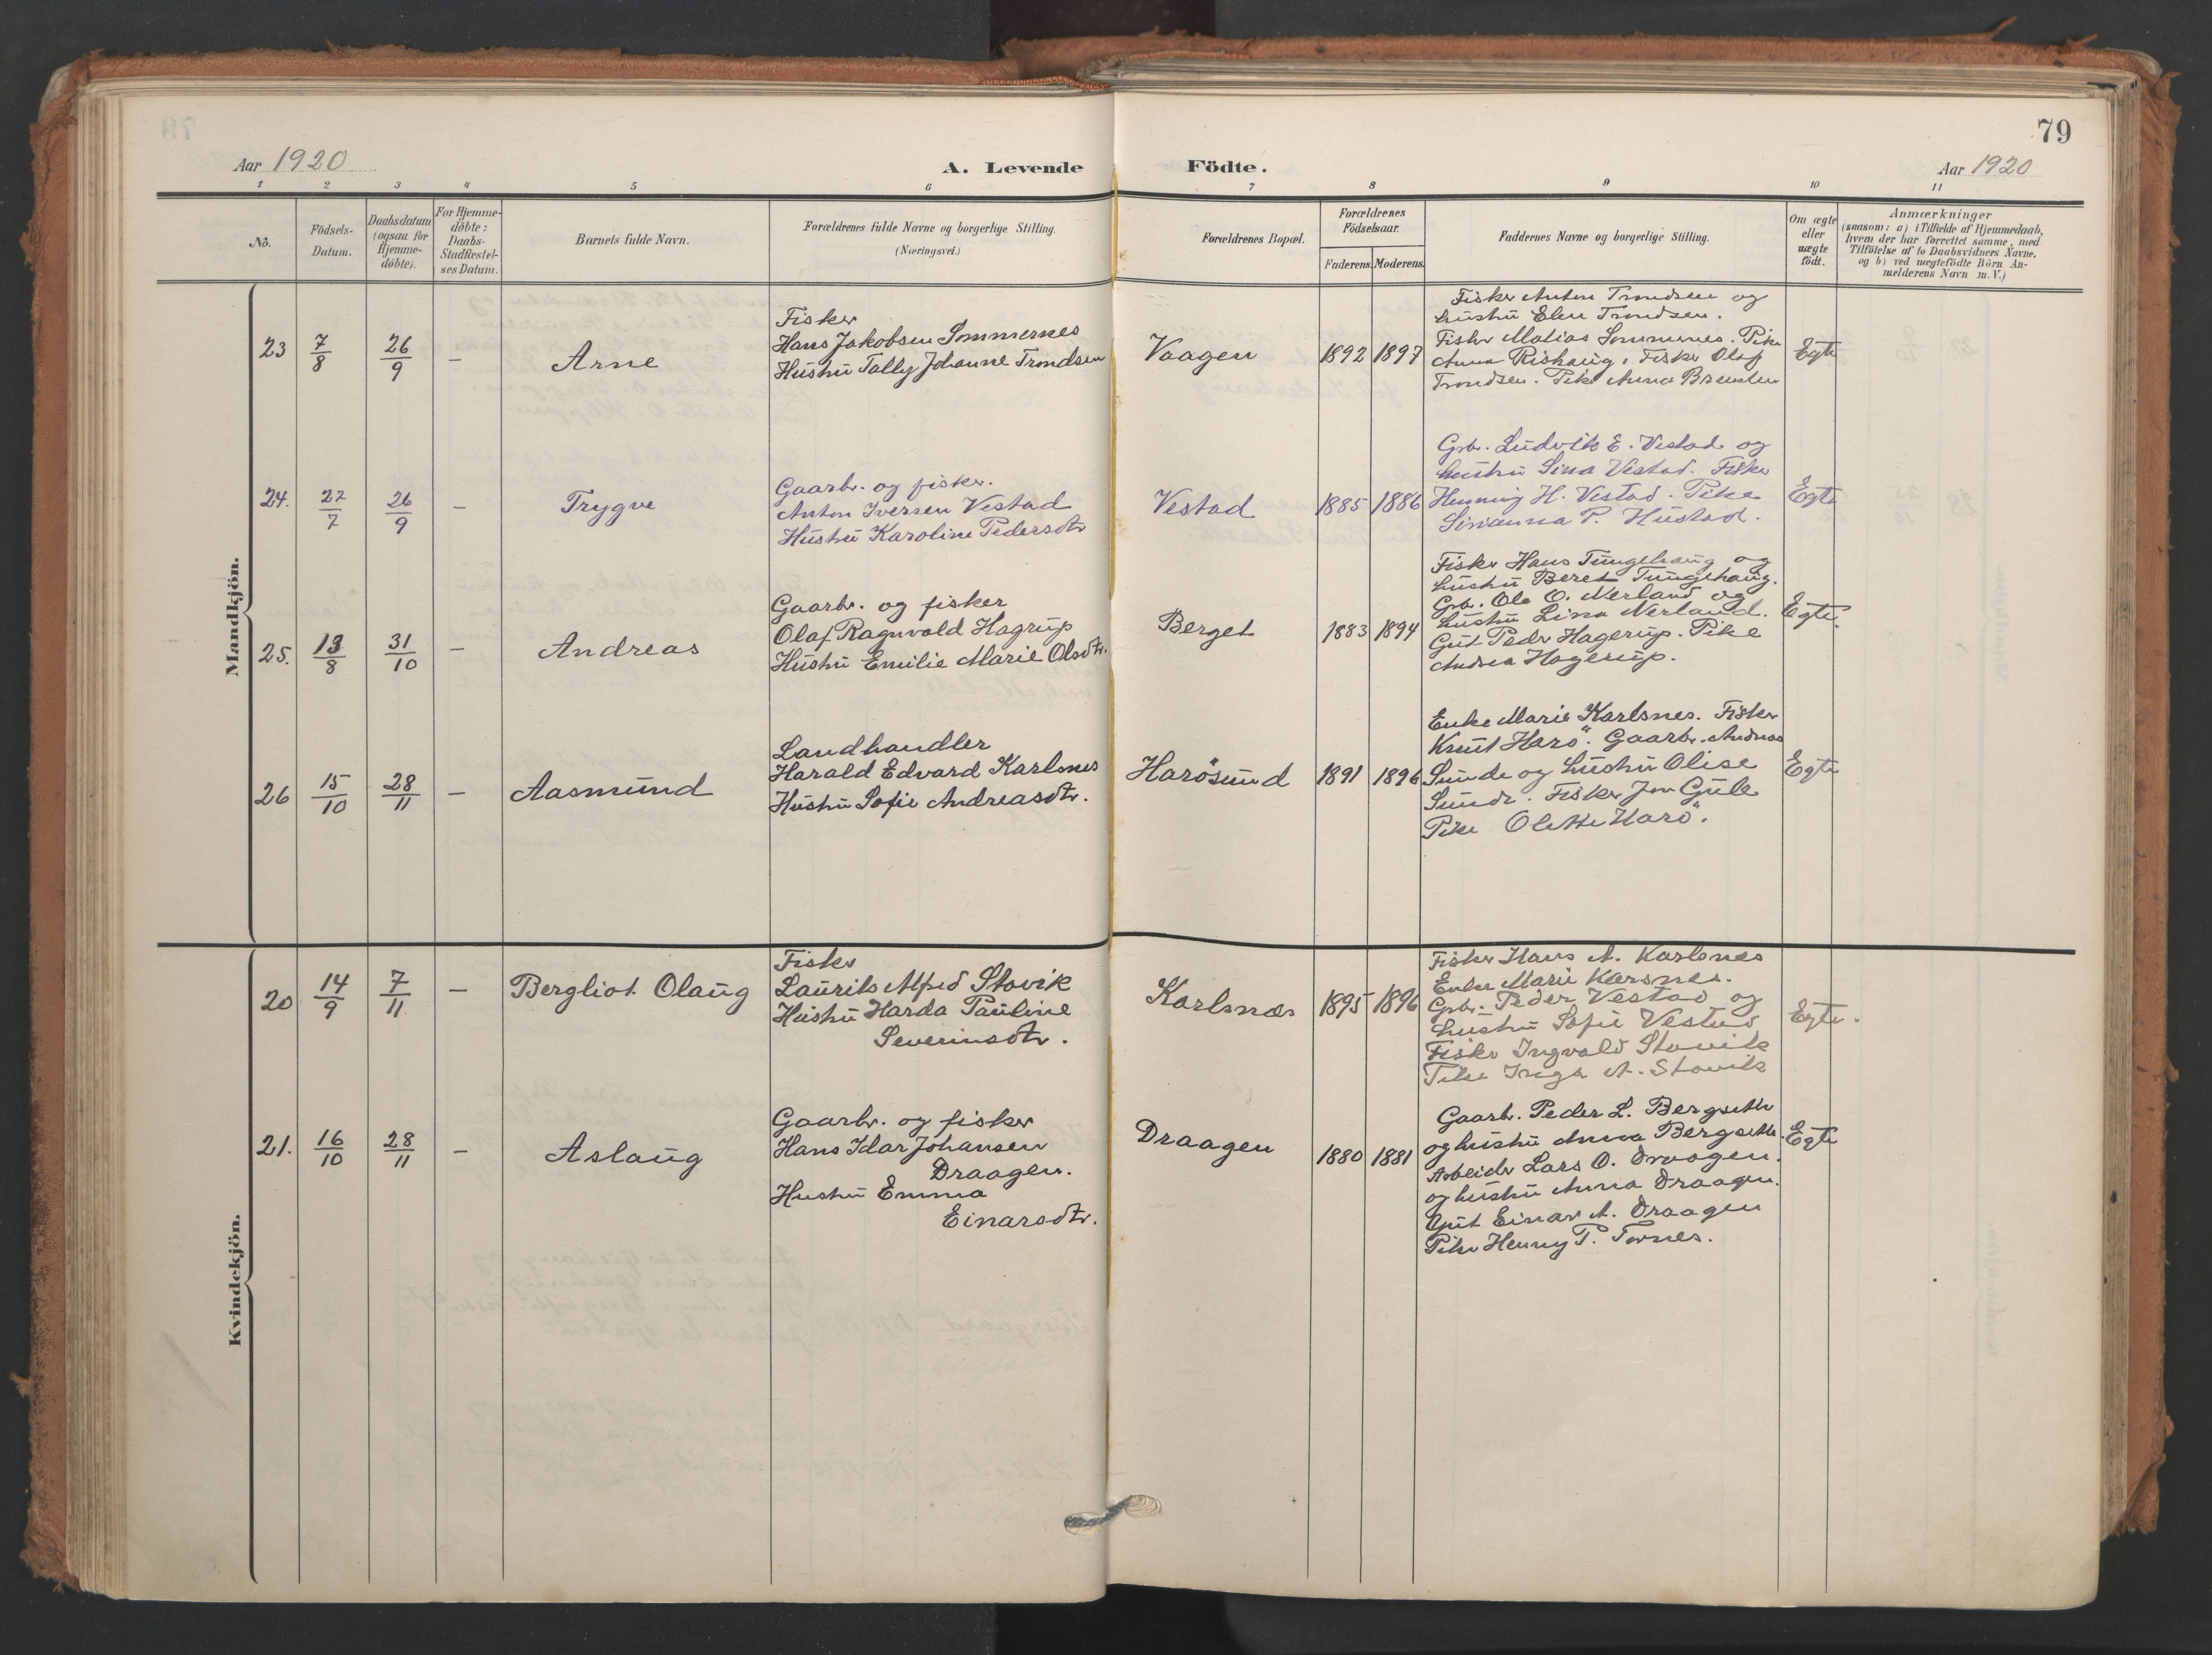 79
Aar 1920
A. Levende Födte.
Aar 1920
1 2 3 4 5 6 7 8 9 10 11
No.
Födsels-
Datum.
Daabsdatum
(ogsaa for
Hjemme-
döbte).
For Hjemme-
döbte:
Daabs-
Stadfæstel-
ses Datum.
Barnets fulde Navn.
Forældrenes fulde Navne og borgerlige Stilling.
(Næringsvei.)
Forældrenes Bopæl.
Forældrenes
Födselsaar.
Faderens. Moderens.
Faddernes Navne og borgerlige Stilling.
Om ægte
eller
uægte
födt.
Anmærkninger
(saasom: a) i Tilfælde af Hjemmedaab,
hvem der har forrettet samme, med
Tilföielse af to Daabsvidners Navne,
og b) ved uægtefödte Börn An-
melderens Navn m. V.)
Mandkjön.
23 7/8 26/9 – Arne
Fisker
Hans Jakobsen Sommernes
Hustru Tally Johanne Trondsen
Vaagen 1892 1897
Fisker Anton Trondsen og
hustru Elen Trondsen.
Fisker Matias Sommernes. Pike
Anna Rishaug, Fisker Olaf
Trondsen. Pike Anna
Egte
24. 27/7 26/9 – Trygve
Gaarbr. og fisker.
Anton Iversen Vestad
Hustru Karoline Pedersdtr
Vestad 1885 1886
Grbr. Ludvik E. Vestad og
hustru Sina Vestad. Fisker
Henning H. Vestad. Pike
P. Hustad.
Egte
25. 13/8 31/10 – Andreas
Gaarbr. og fisker
Olaf Ragnvald Hagrup
Hustru Emilie Marie Olsdtr.
Berget 1883 1894
Fisker Hans Tungehaug og
hustru Beret Tungehaug.
Grbr. Ole O. Nerland og
hustru Lina Nerland.
Gut Peder Hagerup. Pike
Andrea Hagerup.
Egte.
26 15/10 28/11 – Aasmund
Landhandler
Harald Edvard Karlsnes
Hustru Sofie Andreasdtr.
Harøsund 1891 1896
Enke Marie Karlsnes. Fisker
Knut Harö. Gaarbr. Andreas
Sunde og hustru Olise
Sunde. Fisker Jon Gule
Pike Olette Harö.
Egte
Kvindekjön.
20 14/9 7/11 – Bergliot Olaug
Fisker
Laurits Alfred Stavik
Hustru Harda Pauline
Severinsdtr.
Karlsnes 1895 1896
Fisker Hans A. Karlsnes
Enke Marie Karsnes.
Grbr. Peder Vestad og
hustru Sofie Vestad
Fisker Ingvald Stavik
Pike Inga A. Stavik
Egte.
21. 16/10 28/11 – Aslaug
Gaarbr. og fisker
Hans Idar Johansen
Draagen.
Hustru Emma
Einarsdtr.
Draagen 1880 1881
Gaarbr. Peder L. Bergseth
og hustru Anna Bergseth.
Arbeider Lars O. Draagen.
og hustru Anna Draagen.
Gut Einar A. Draagen
Pike Henny P. Tornes.
Egte